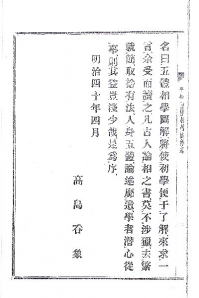 名曰五體相學圖解將使初學便于了解來求一
言余受而讀之凡古人論相之書莫不涉靈去繁
蕪簡取捨有法人身五體論述靡遺學者潛心從
事則其益豈淺少哉是爲序
明治四十年四月
高島吞象